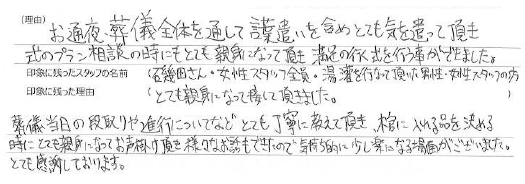 (理由)
お通夜・葬儀全体を通して言葉遣いを含めとても気を遣って頂き
式のプラン相談の時にもとても親身になって頂き満足の行く式を行う事ができました。
印象に残ったスタッフの名前 (石幾田さん・女性スタッフ全員・湯灌を行なって頂いた男性・女性スタッフの方
印象に残った理由 (とても親身になって接して頂きました。 )
葬儀当日の段取りや進行についてなどとても丁寧に教えて頂き、棺に入れる品を決める
時にとても親身になってお声掛け頂き様々なお話もできたので気持ち的に少し楽になる場面がございました。
とても感謝しております。